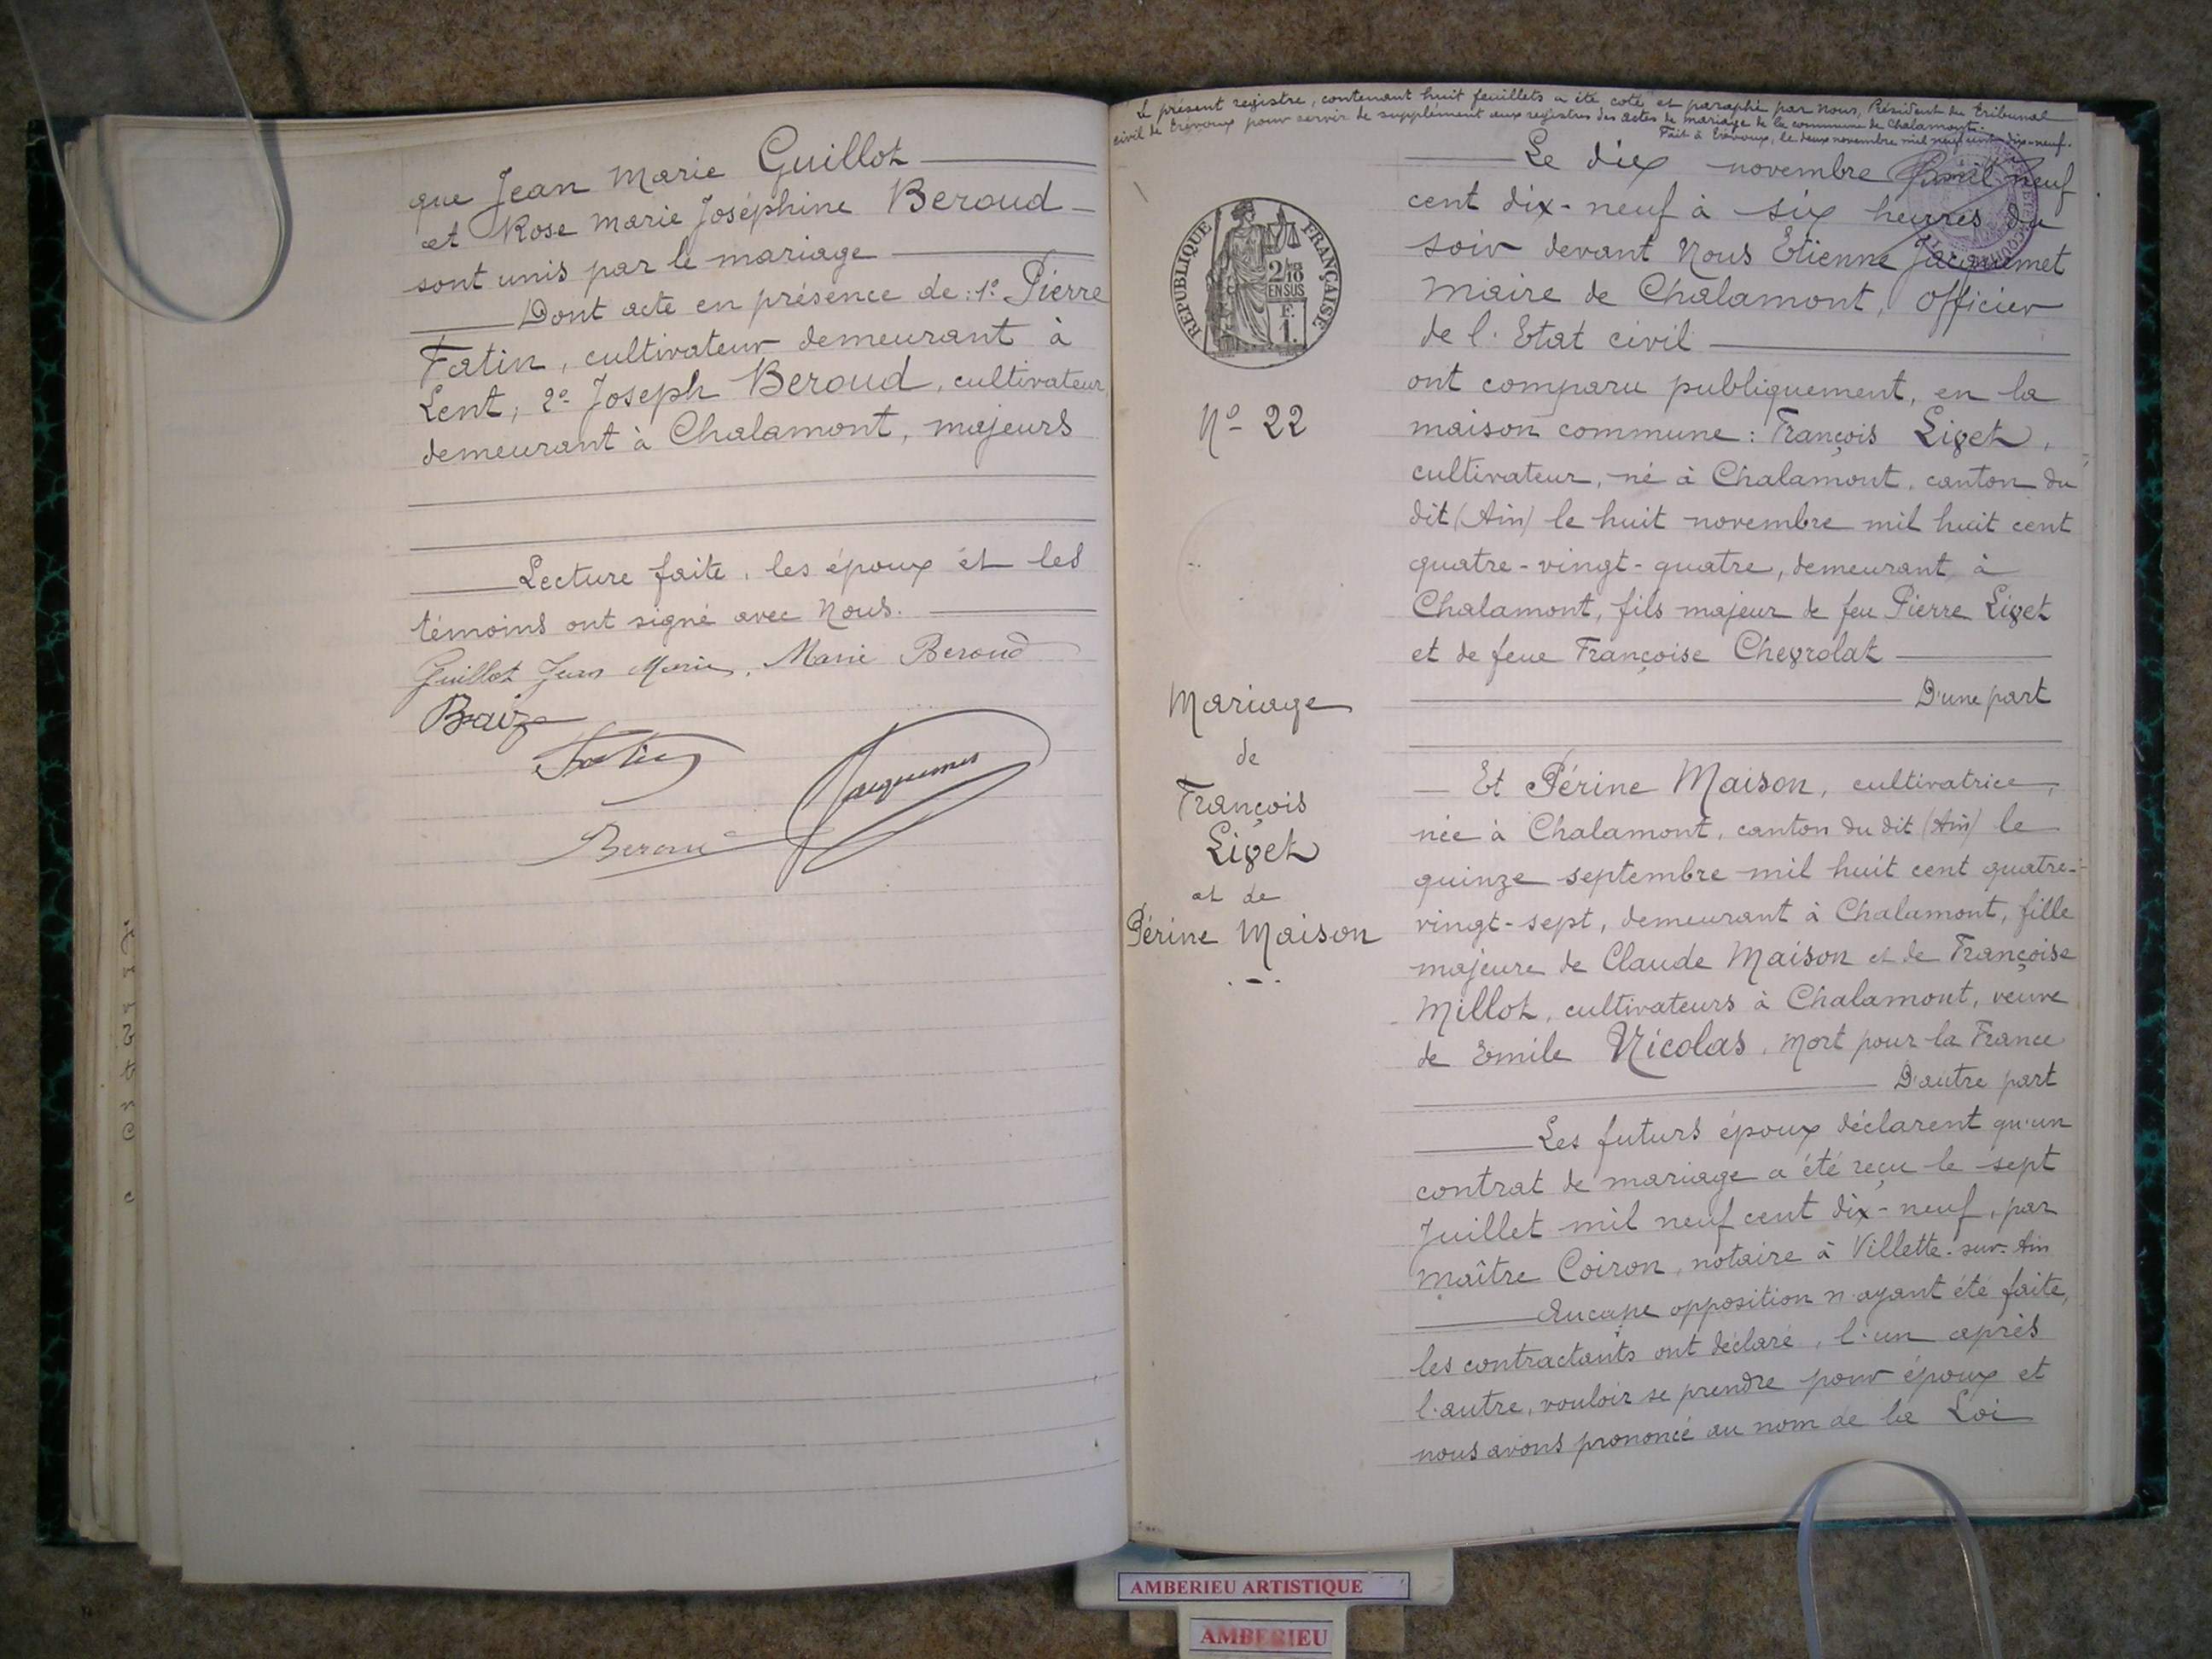 que Jean Marie Guillot
et Rose Marie Joséphine Beroud
sont unis par le mariage
Dont acte en présence de : 1º Pierre
Fatin, cultivateur demeurant à
Lent, 2º Joseph Beroud, cultivateur
demeurant à Chalamont, majeurs
Lecture faite, les époux et les
témoins ont signé avec Nous.
Guillot Jean Marie, Marie Beroud
Braize
Fatin
Jacquemet
Beroud
Le présent registre, contenant huit feuillets a été coté et paraphé par Nous, Président du Tribunal
civil de Trévoux pour servir de supplément aux registres des actes de mariage de la commune de Chalamont.
Fait à Trévoux, le deux novembre mil neuf cent dix-neuf.
REPUBLIQUE FRANÇAISE
2/10
EN SUS
F.
1.
Nº 22
Mariage
de
François
Liget
et de
Périne Maison
Le dix novembre mil neuf
cent dix-neuf à six heures du
soir devant Nous Etienne Jacquemet
Maire de Chalamont, Officier
de l'Etat civil
ont comparu publiquement, en la
maison commune : François Liget,
cultivateur, né à Chalamont, canton du
dit (Ain) le huit novembre mil huit cent
quatre-vingt-quatre, demeurant à
Chalamont, fils majeur de feu Pierre Liget
et de feue Françoise Chevrolat
D'une part
Et Périne Maison, cultivatrice,
née à Chalamont, canton du dit (Ain) le
quinze septembre mil huit cent quatre-
vingt-sept, demeurant à Chalamont, fille
majeure de Claude Maison et de Françoise
Millot, cultivateurs à Chalamont, veuve
de Emile Nicolas, Mort pour la France
D'autre part
Les futurs époux déclarent qu'un
contrat de mariage a été reçu le sept
Juillet mil neuf cent dix-neuf, par
Maître Coiron, notaire à Villette-sur-Ain
Aucune opposition n'ayant été faite,
les contractants ont déclaré, l'un après
l'autre, vouloir se prendre pour époux et
nous avons prononcé au nom de la Loi
AMBERIEU ARTISTIQUE
AMBERIEU